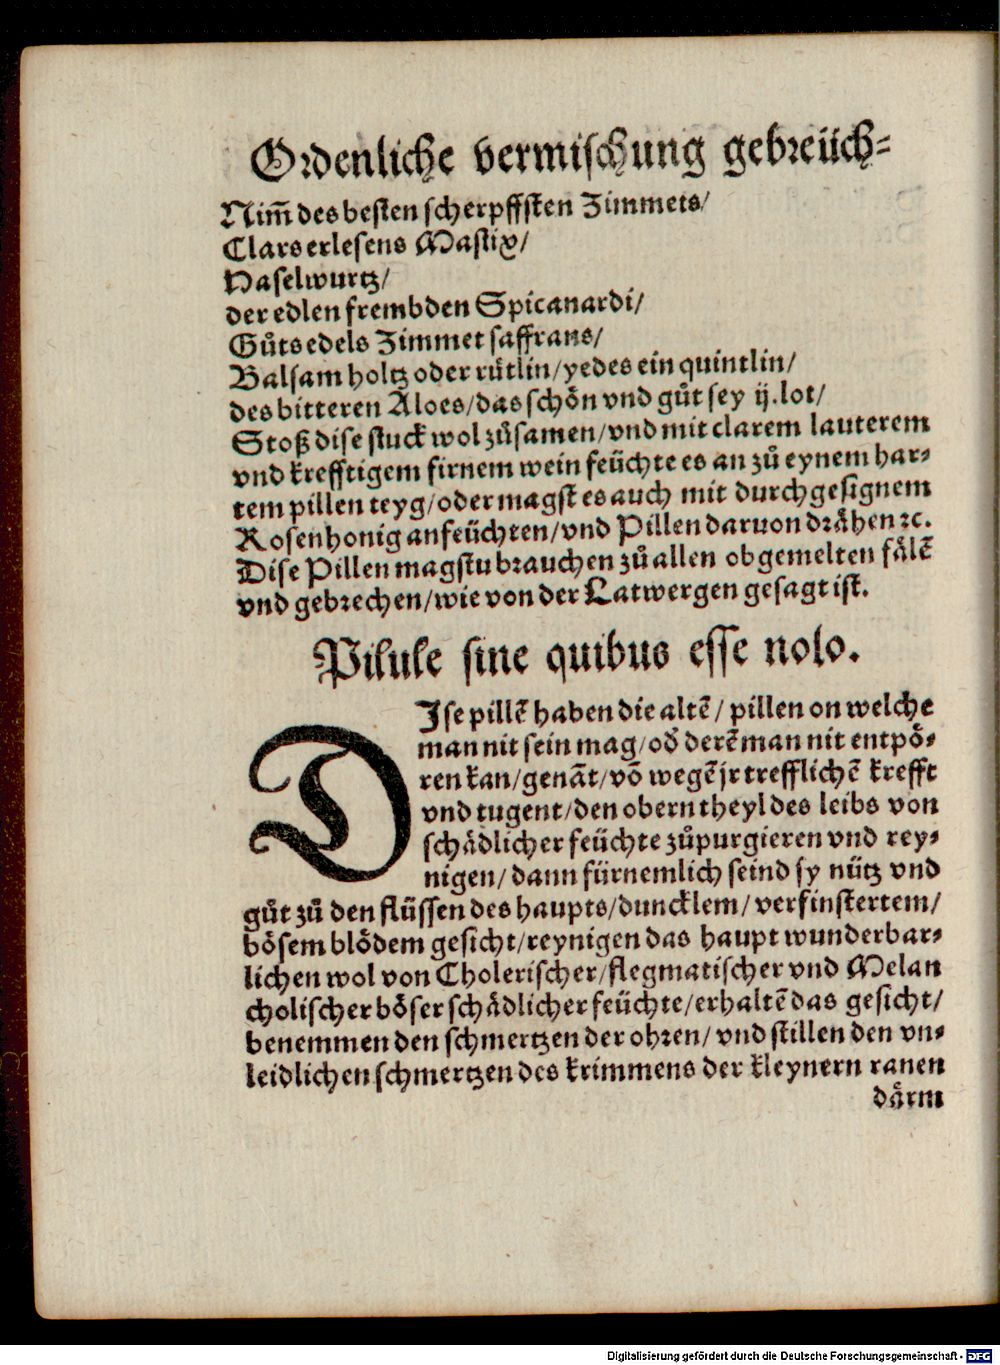 Ordenliche vermischung gebreüch-
Nim̃ des besten scherpffsten Zimmets/
Clars erlesens Mastix/
Haselwurtz/
der edlen frembden Spicanardi/
Gůts edels Zimmet saffrans/
Balsam holtz oder růtlin/yedes ein quintlin/
des bitteren Aloes/das schön vnd gůt sey ij.lot/
Stoß dise stuck wol zůsamen/vnd mit clarem lauterem
vnd krefftigem firnem wein feüchte es an zů eynem har-
tem pillen teyg/oder magst es auch mit durchgesignem
Rosenhonig anfeüchten/vnd Pillen daruon drähen ꝛc.
Dise Pillen magstu brauchen zů allen obgemelten fälẽ
vnd gebrechen/wie von der Latwergen gesagt ist.
Pilule sine quibus esse nolo.
DIse pillẽ haben die altẽ/ pillen on welche
man nit sein mag/oď derẽ man nit entpö-
ren kan/genãt/võ wegẽ jr trefflichẽ krefft
vnd tugent/den obern theyl des leibs von
schädlicher feüchte zůpurgieren vnd rey-
nigen/ dann fürnemlich seind sy nütz vnd
gůt zů den flüssen des haupts/duncklem/ verfinstertem/
bösem blödem gesicht/reynigen das haupt wunderbar-
lichen wol von Cholerischer/flegmatischer vnd Melan
cholischer böser schädlicher feüchte/erhaltẽ das gesicht/
benemmen den schmertzen der ohren/ vnd stillen den vn-
leidlichen schmertzen des krimmens der kleynern ranen
därm
Digitalisierung gefördert durch die Deutsche Forschungsgemeinschaft - DFG